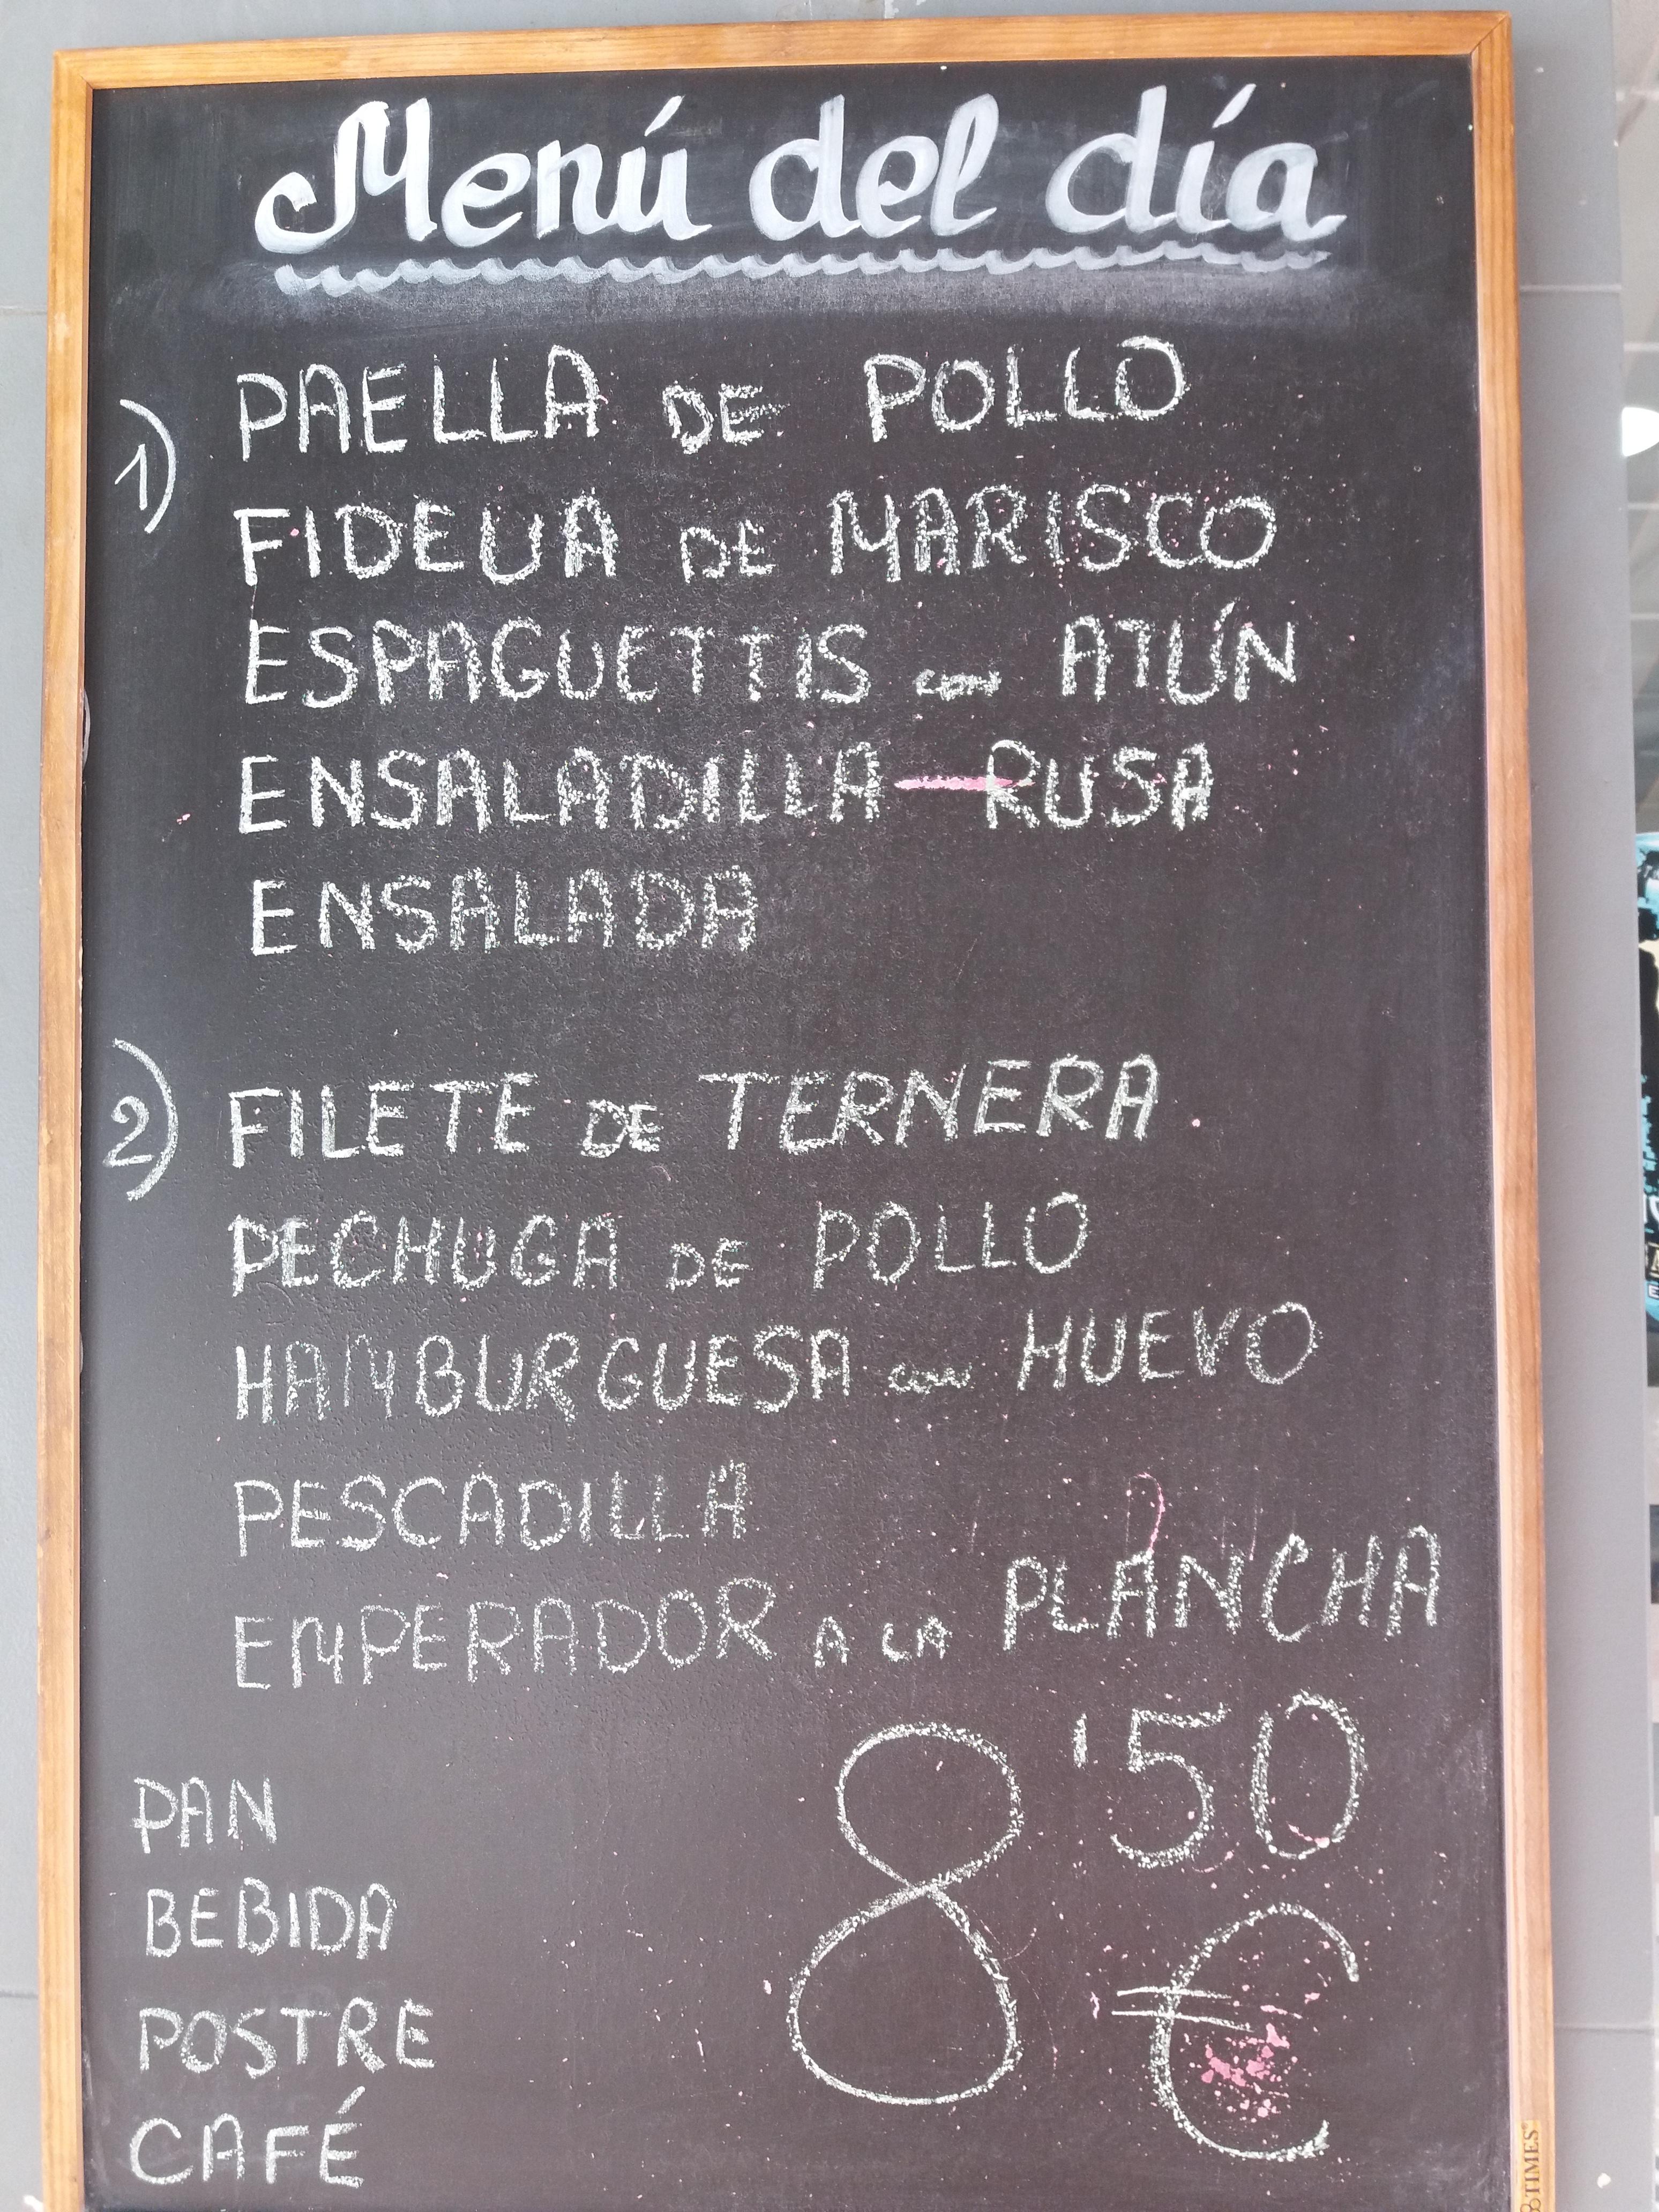 Menú del día
1) PAELLA DE POLLO
FIDEUA DE MARISCO
ESPAGUETTIS con ATÚN
ENSALADILLA RUSA
ENSALADA
2) FILETE DE TERNERA
PECHUGA DE POLLO
HAMBURGUESA con HUEVO
PESCADILLA
EMPERADOR A LA PLANCHA
8'50
€
PAN
BEBIDA
POSTRE
CAFÉ
TIMES